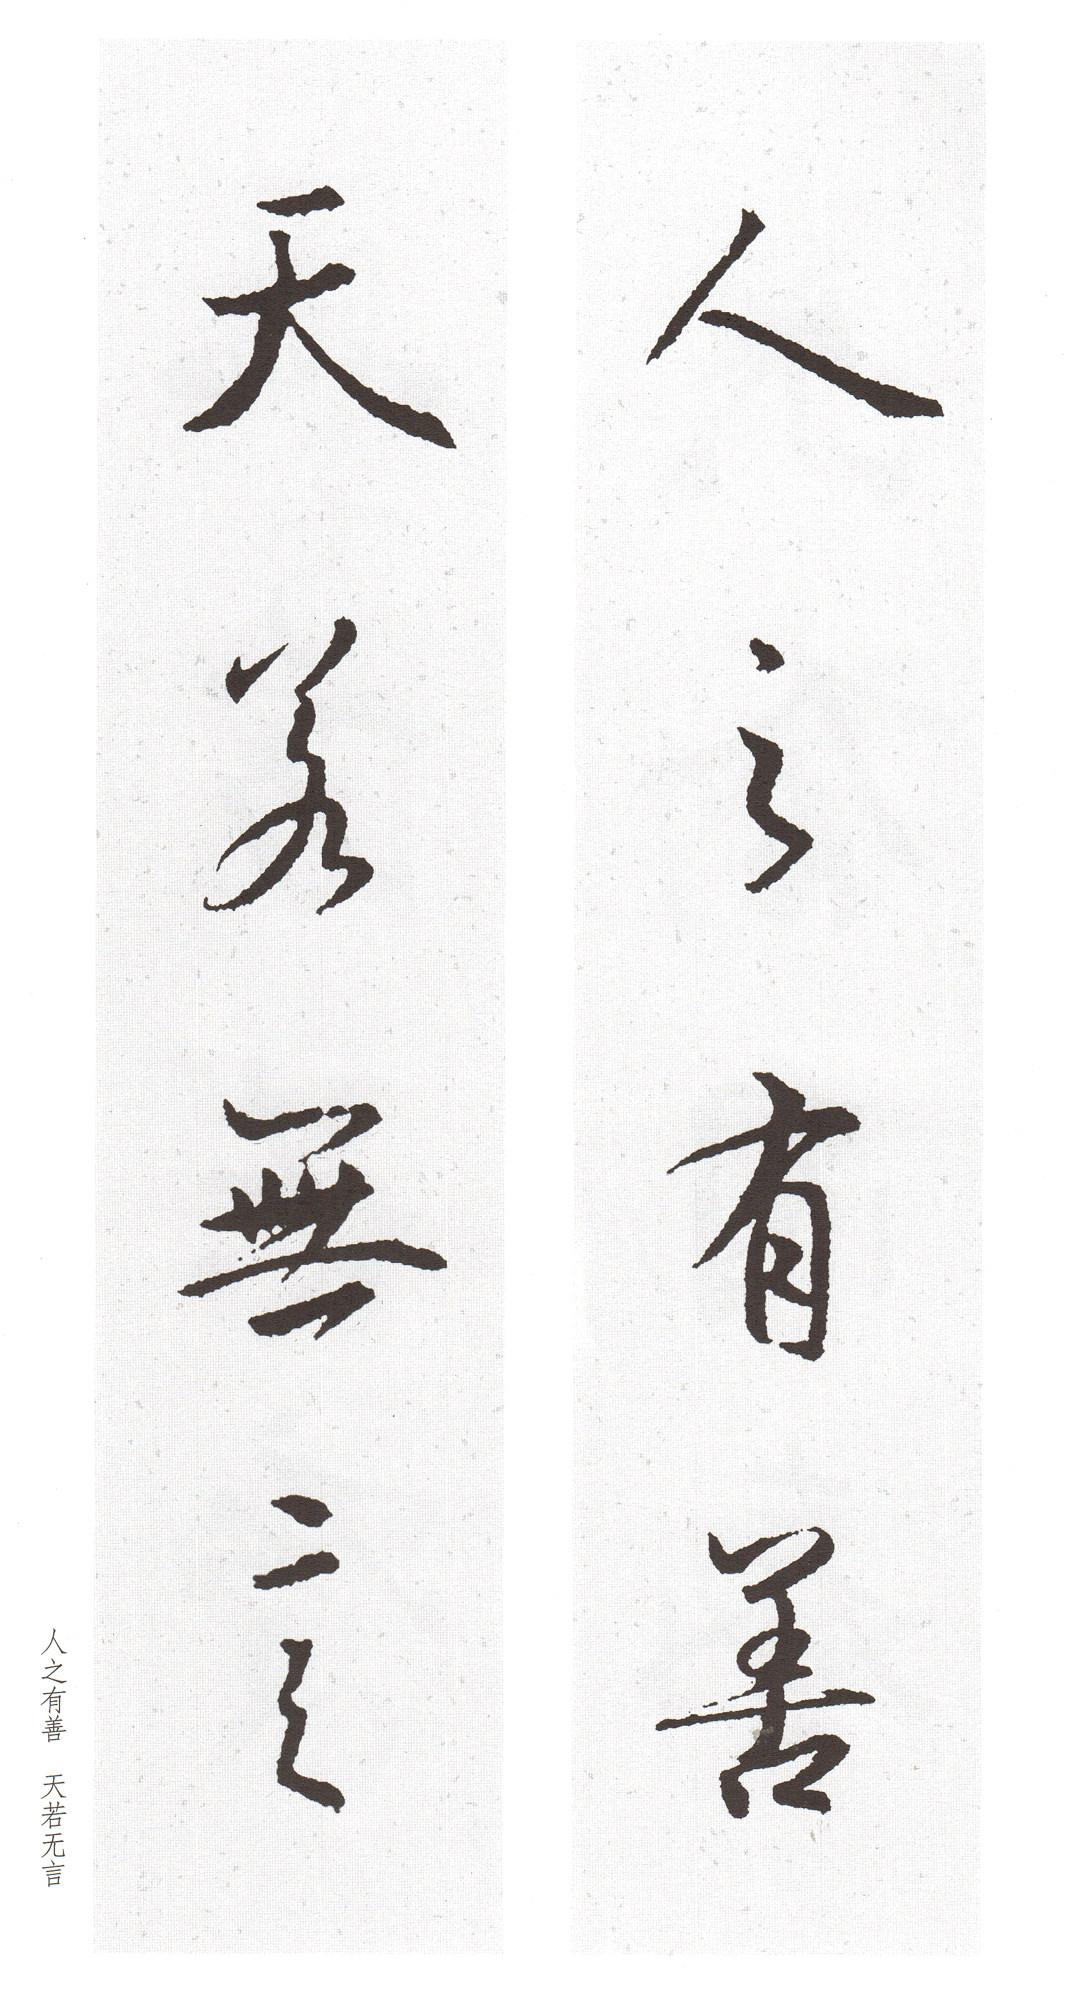 人之有善
天若無言
人之有善　天若无言